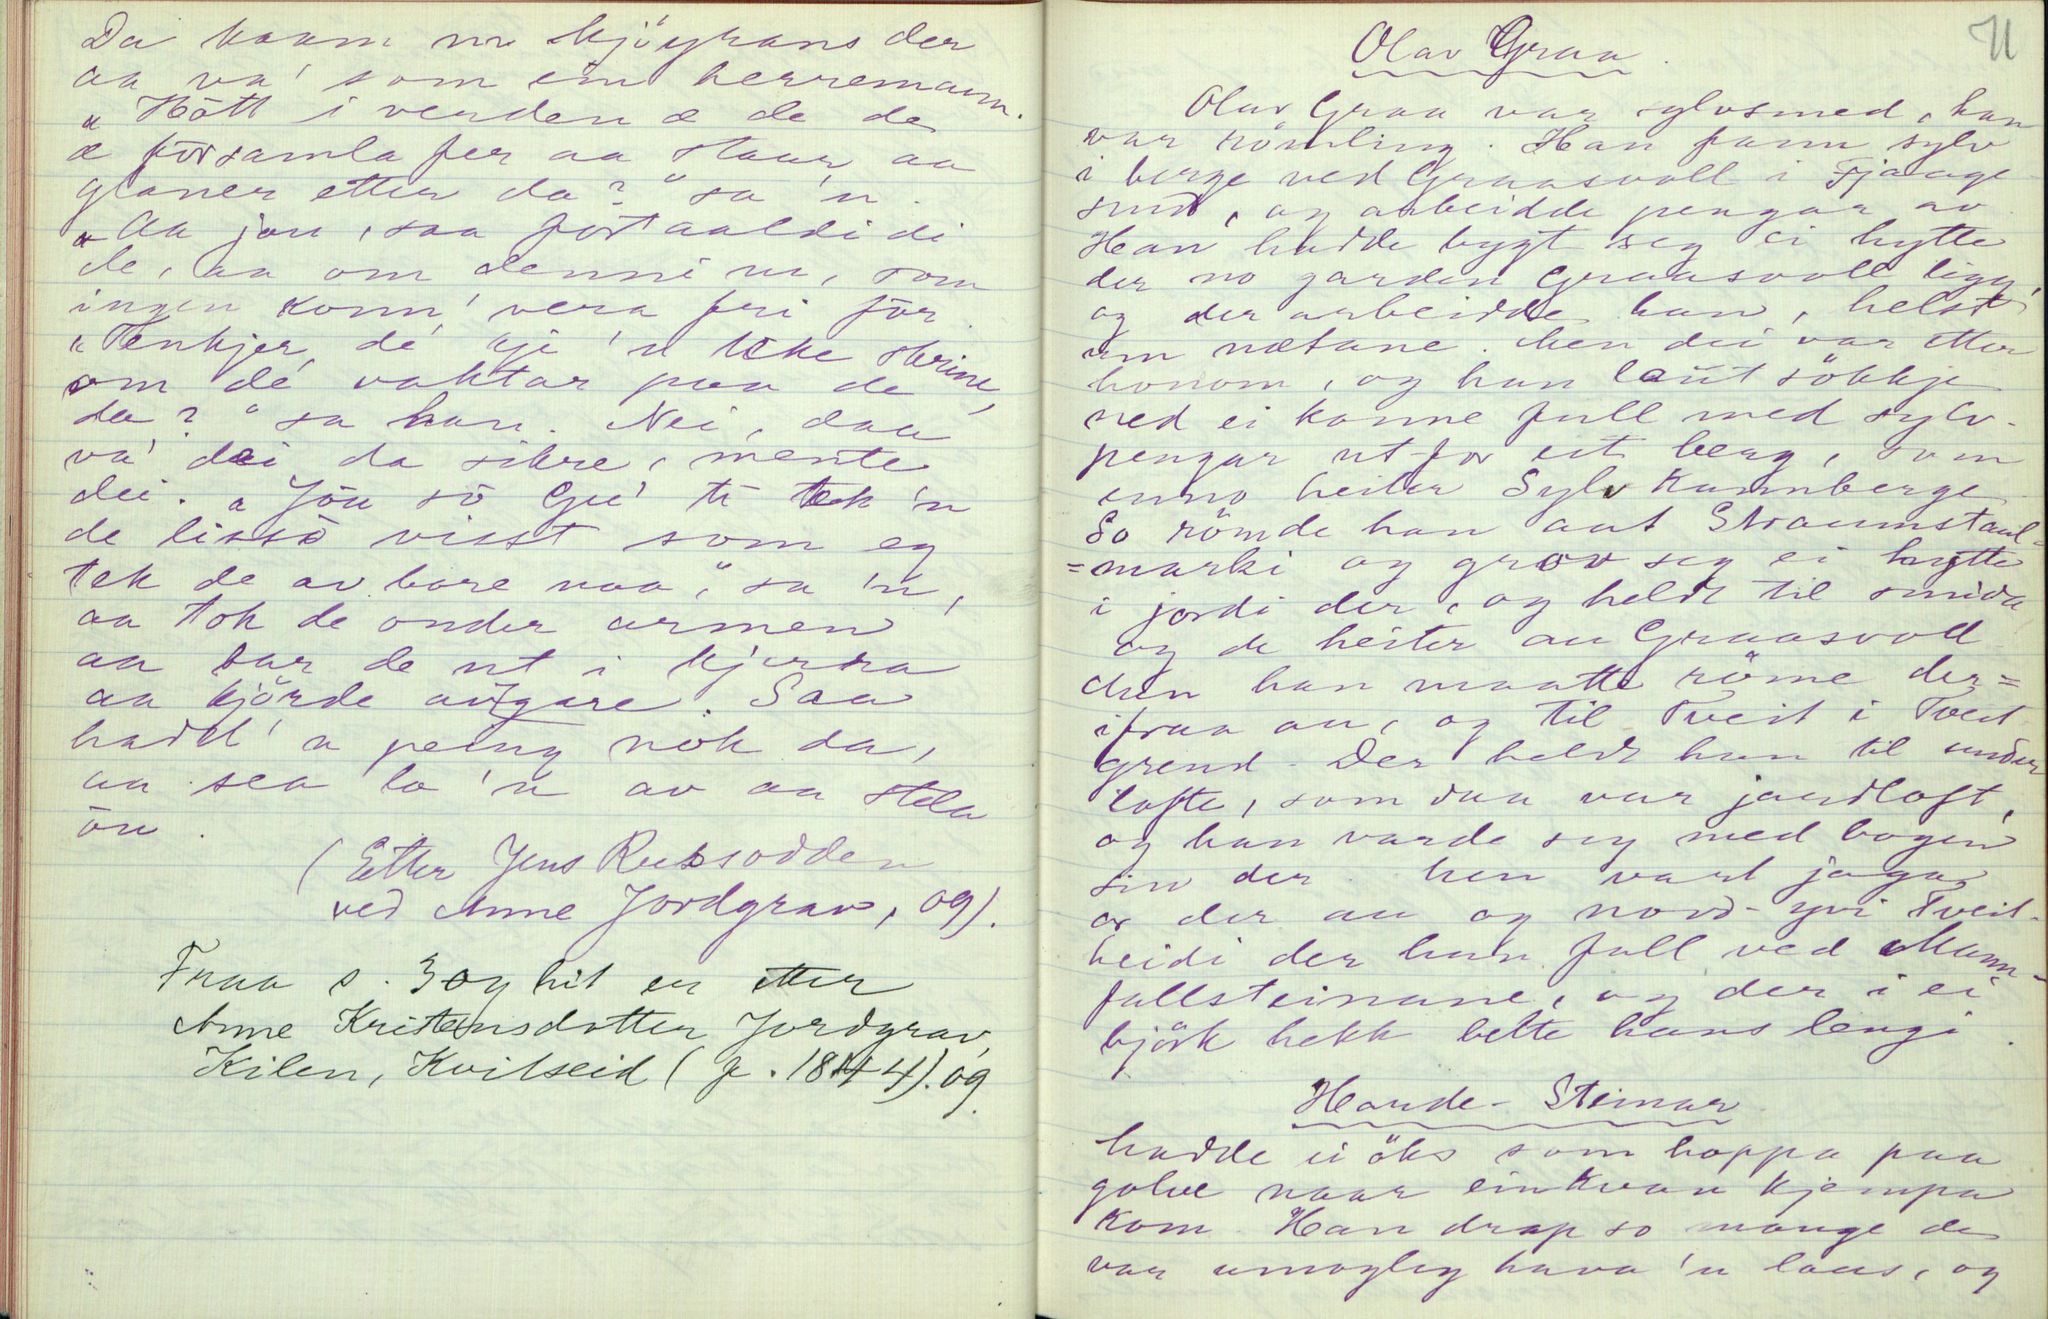 Da kaam nr skjöyrans der
aa va' som ein herremann.
"Hött i verden æ de de
æ församla fer aa staar aa
glaner etter da?" sa 'n.
"Aa jau, saa fortaaldi di
de, aa om denni nr, som
ingen konn' vera fri för.
"Tenkjer de, 'n ikke skrine,
om de vaktar paa de
da?" sa han. Nei, daa
va' dei da sikre, mente
dei. "Jöu sö Gu' ti tek 'n
de lissö visst som eg
tek de av bore naa," sa 'n,
aa tok de onder armen
aa bar de ut i kjerra
aa kjörde avgare. Saa
hadd' 'n peing nok da,
aa sea la 'n av aa stela
öu.
(Etter Jens Russodden
ved Anne Jordgrav, og).
Fraa s. 3 og hit er etter
Anne Kristensdotter Jordgrav,
Kilen, Kvitseid (f. 1844). og.
11
Olav Graa.
Olav Graa var sylvsmed, han
var römling. Han fann sylv
i berge ved Graasvoll i Fjaage-
sund, og arbeidde pengar av
Han hadde bygt seg ei hytte
der no garden Graasvoll ligg,
og der arbeidde han, helst
um nætane. Men dei var etter
honom, og han laut sökkje
ned ei kanne full med sylv-
pengar utfor eit berg, som
enno heiter Sylvkannberge.
So römde han aat Straumstaul-
=marki og grov seg ei hytte
i jordi der, og heldt til smida
og de heiter au Graasvoll
Men han maatte röme der=
ifraa au, og til Tveit i Tveit-
grend. Der heldt han til under
lofte, som daa var jordloft,
og han varde seg med bogen
sin der. Men vart jaga
or der au og nord-yvi Tveit-
heidi der han fall ved Mann-
fallsteinane, og der i ei
björk hekk belte hans lengi.
Horde-Steinar
hadde ei öks som hoppa paa
golve naar einkvan kjempa
kom. Han drap so mange de
var umogleg hava 'n laus, og